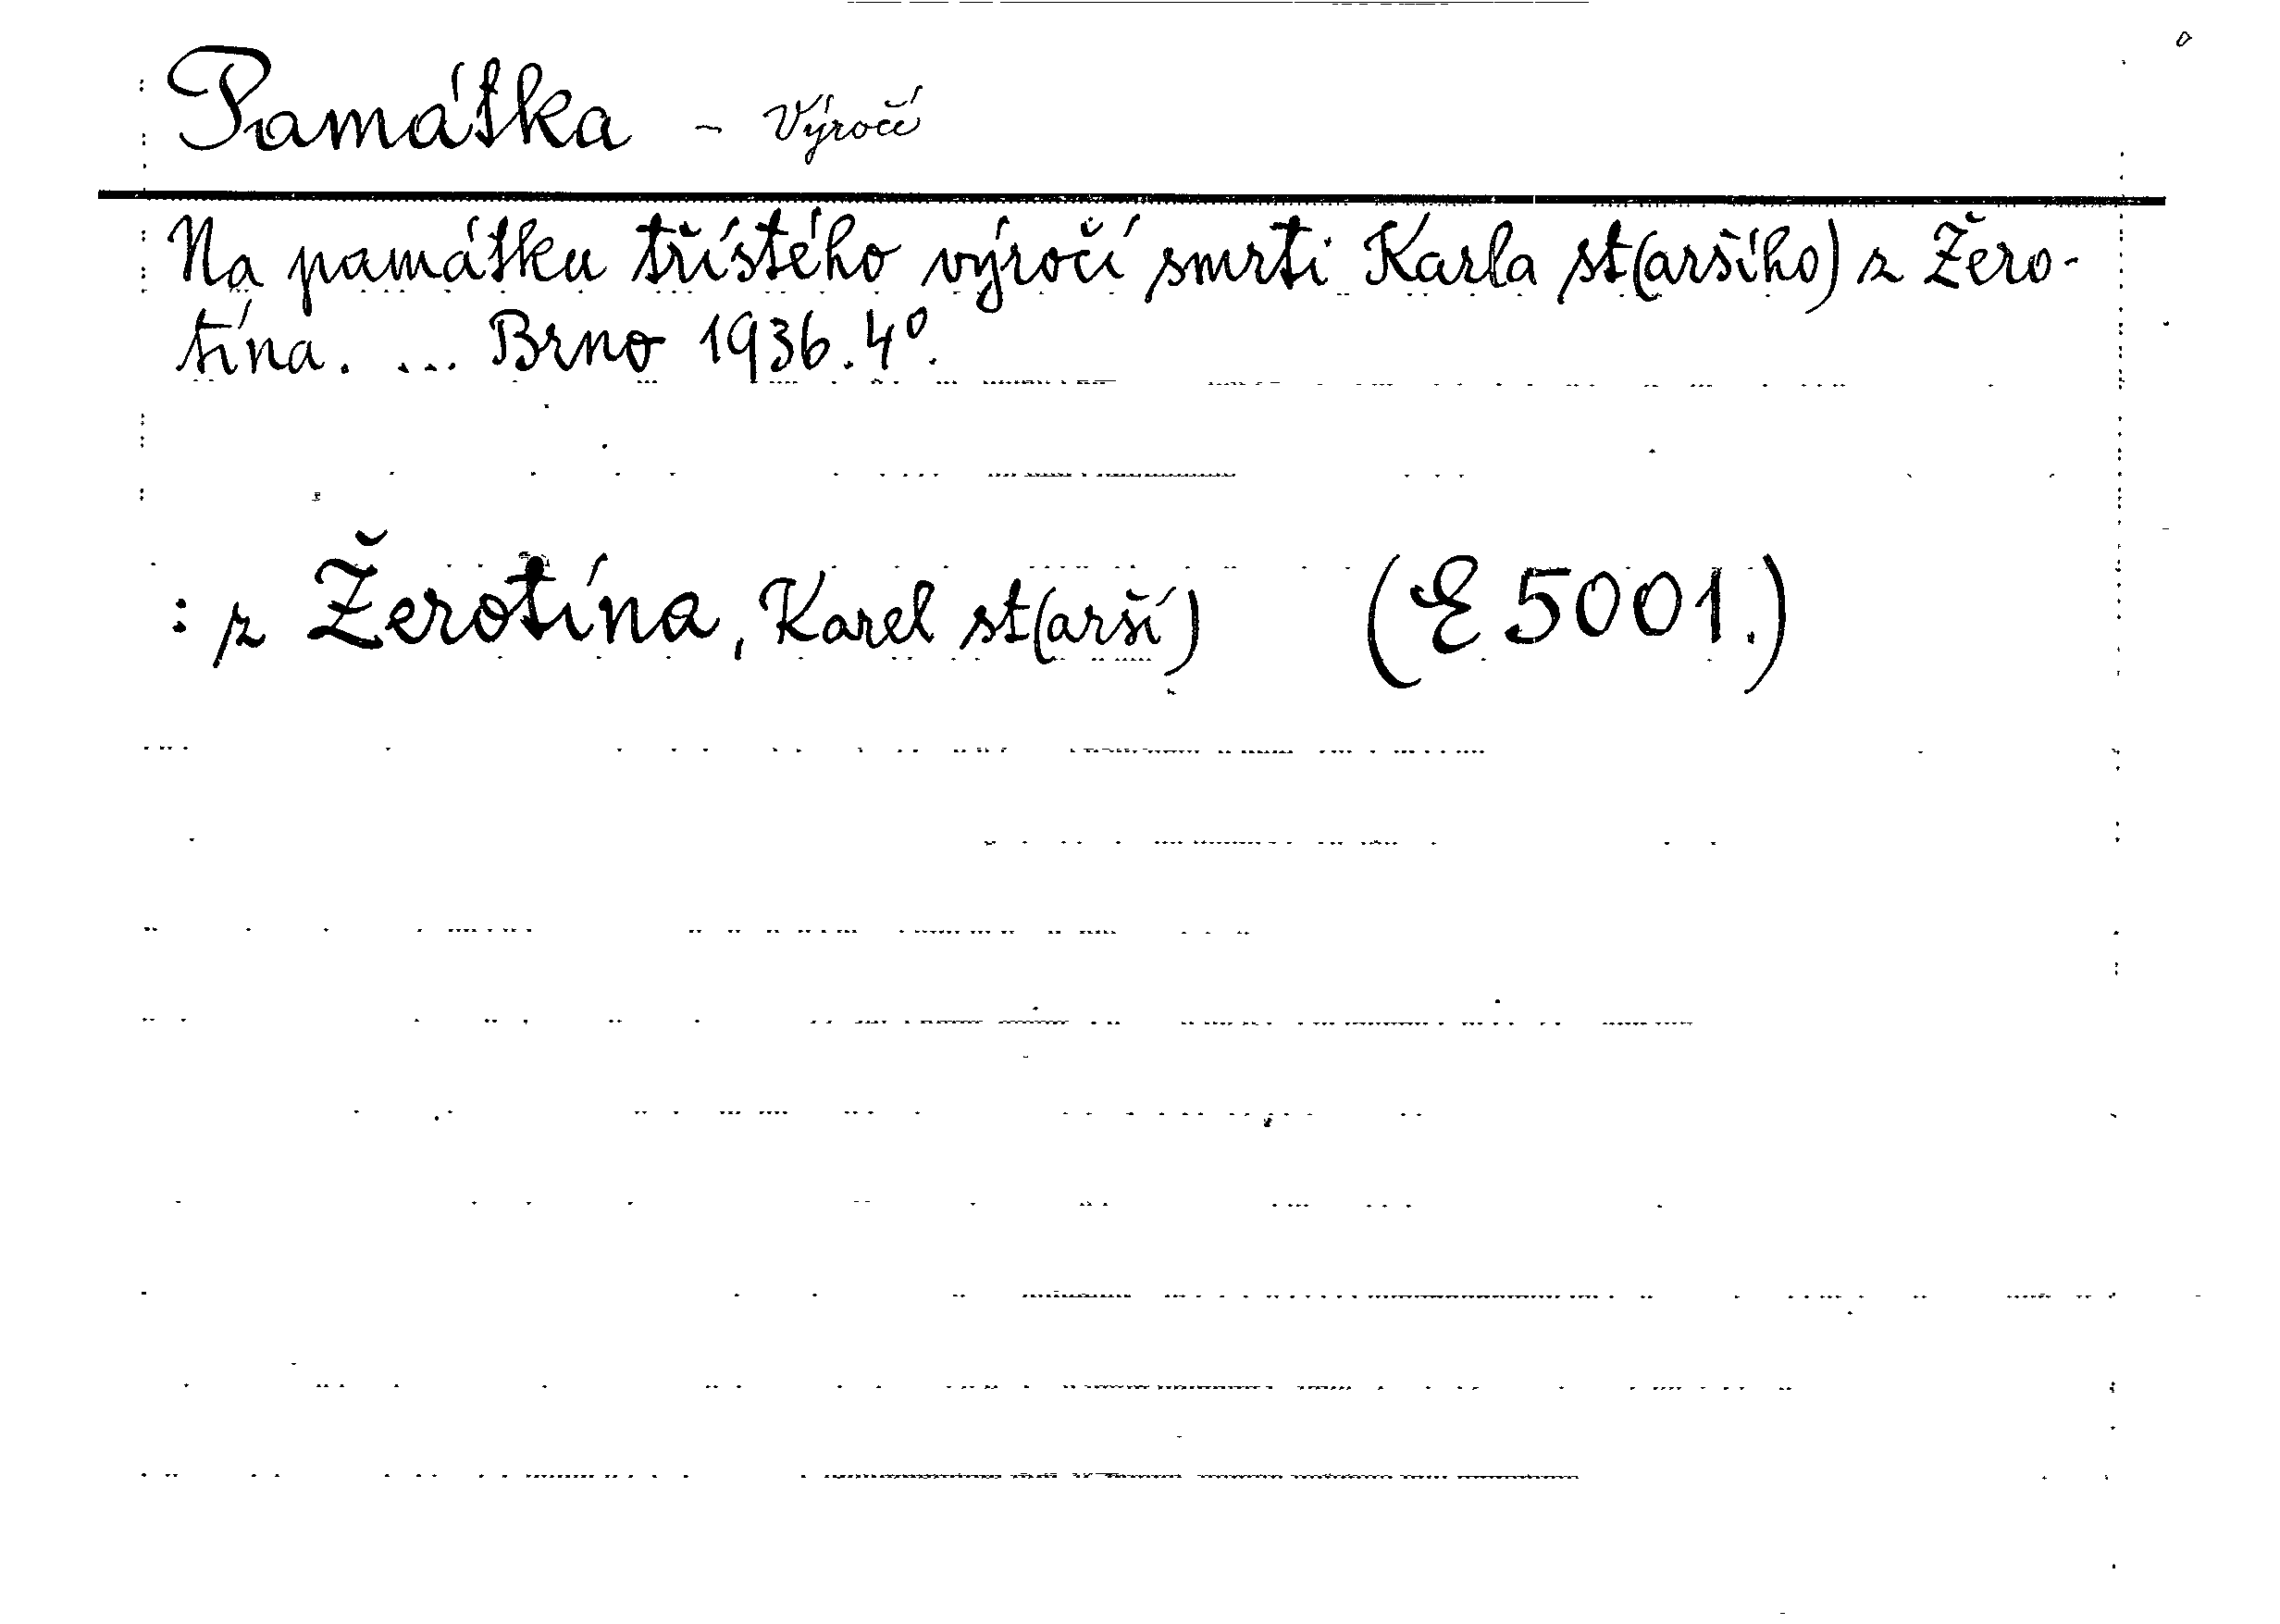 Památka - Výročí
Na památku třístého výročí smrti Karla st(aršího) z Žero-
tína. ... Brno 1936. 4º.
: z Žerotína, Karel st(arší) (E 5001.)